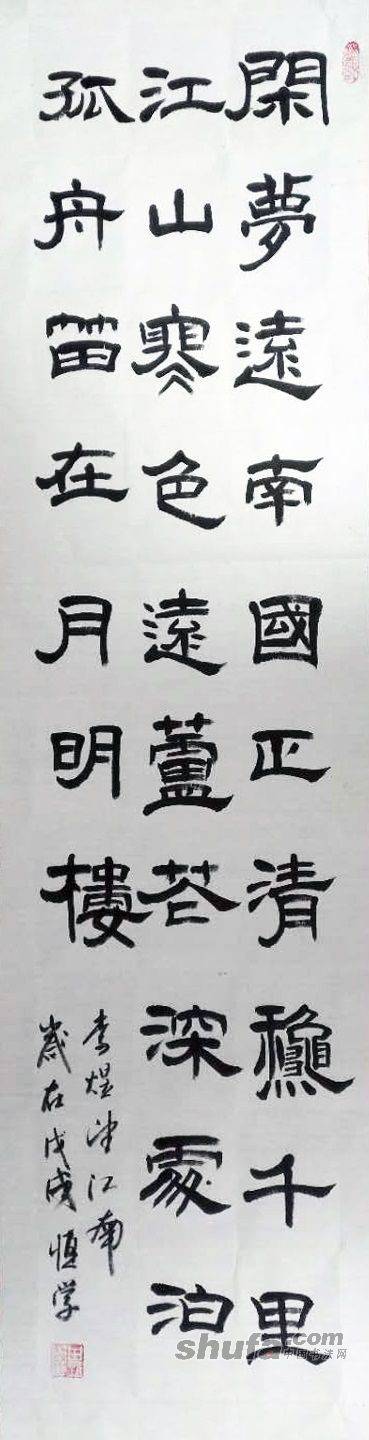 閑夢遠南國正清龝千里
江山寒色遠蘆花深處泊
孤舟笛在月明樓
李煜望江南
歲在戊戌恆學
shufa.com
中国书法网